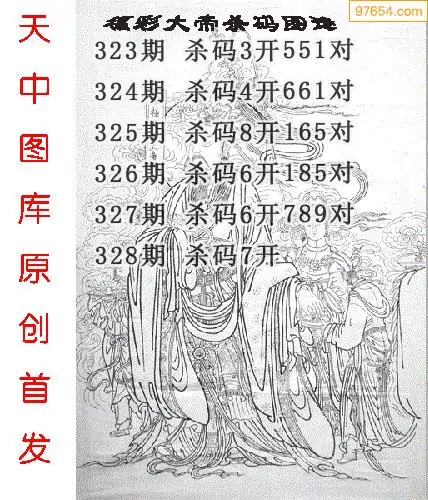 97654.com
福彩大帝杀码图迷
323期 杀码3开551对
324期 杀码4开661对
325期 杀码8开165对
326期 杀码6开185对
327期 杀码6开789对
328期 杀码7开
天中图库原创首发